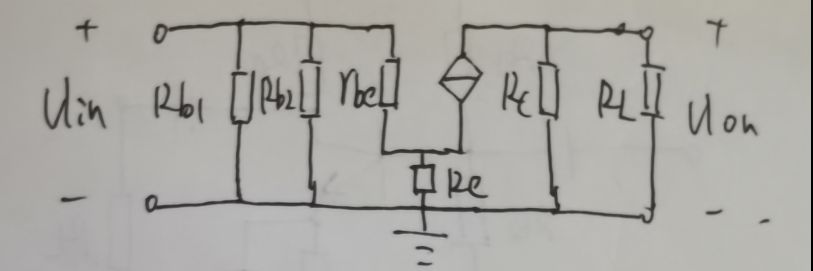 + +
Uin Rb1 Rb2 rbe Rc RL Uon
- Re -